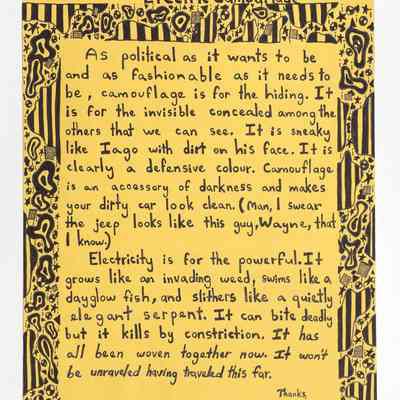 Electric Camouflage
As political as it wants to be
and as fashionable as it needs to
be, camouflage is for the hiding. It
is for the invisible concealed among the
others that we can see. It is sneaky
like Iago with dirt on his face. It is
clearly a defensive colour. Camouflage
is an accessory of darkness and makes
your dirty car look clean. (Man, I swear
the jeep looks like this guy, Wayne, that
I know.)
Electricity is for the powerful. It
grows like an invading weed, swims like a
dayglow fish, and slithers like a quietly
elegant serpent. It can bite deadly
but it kills by constriction. It has
all been woven together now. It won't
be unraveled having traveled this far.
Thanks,